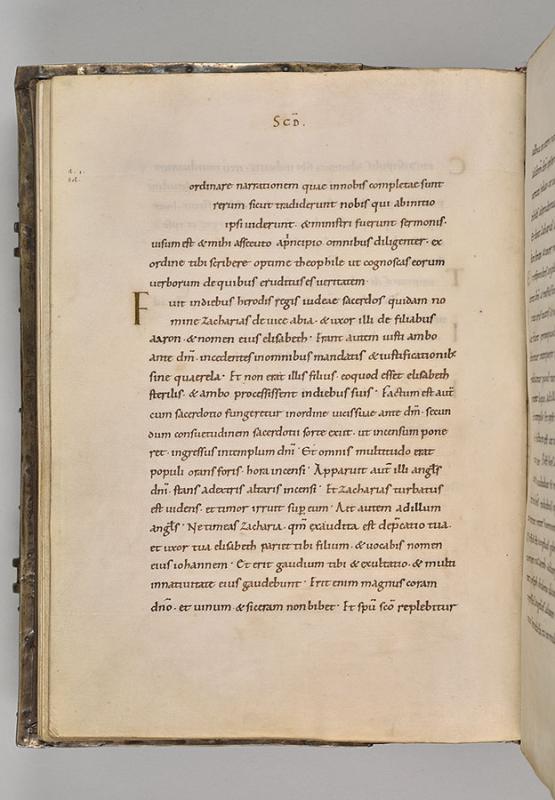 SCD̄.
ordinare narrationem quae innobis completae sunt
rerum. sicut tradiderunt nobis qui abinitio
ipsi uiderunt. & ministri fuerunt sermonis.
uisum est & mihi assecuto aprincipio omnibus diligenter. ex
ordine tibi scribere optime theophile ut cognoscas eorum
uerborum dequibus eruditus es ueritatem.
Fuit indiebus herodis regis iudeae sacerdos quidam no
mine Zacharias de uice abia. & uxor illi de filiabus
aaron. & nomen eius elisabeth. Erant autem iusti ambo
ante dm̄. incedentes inomnibus mandatis & iustificationib;
sine quaerela. Et non erat illis filius. eoquod esset elisabeth
sterilis. & ambo processissent indiebus suis. Factum est aut̄
cum sacerdotio fungeretur inordine uicissuae ante dm̄. secun
dum consuetudinem sacerdotii sorte exiit. ut incensum pone
ret. ingressus intemplum dnī. Et omnis multitudo erat
populi orans foris. hora incensi. Apparuit aut̄ illi angl̄s
dnī. stans adextris altaris incensi. Et Zacharias turbatus
est uidens. et timor irruit sup̄ eum. Ait autem adillum
angl̄s. Netimeas Zacharia. qm̄ exaudita est dep̄catio tua.
et uxor tua elisabeth pariet tibi filium. & uocabis nomen
eius iohannem. Et erit gaudium tibi & exultatio. & multi
innatiuitate eius gaudebunt. Erit enim magnus coram
dnō. et uinum & siceram non bibet. Et spū scō replebitur